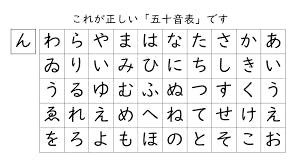 これが正しい「五十音表」です
ん わ ら や ま は な た さ か あ
ゐ り い み ひ に ち し き い
う る ゆ む ふ ぬ つ す く う
ゑ れ え め へ ね て せ け え
を ろ よ も ほ の と そ こ お